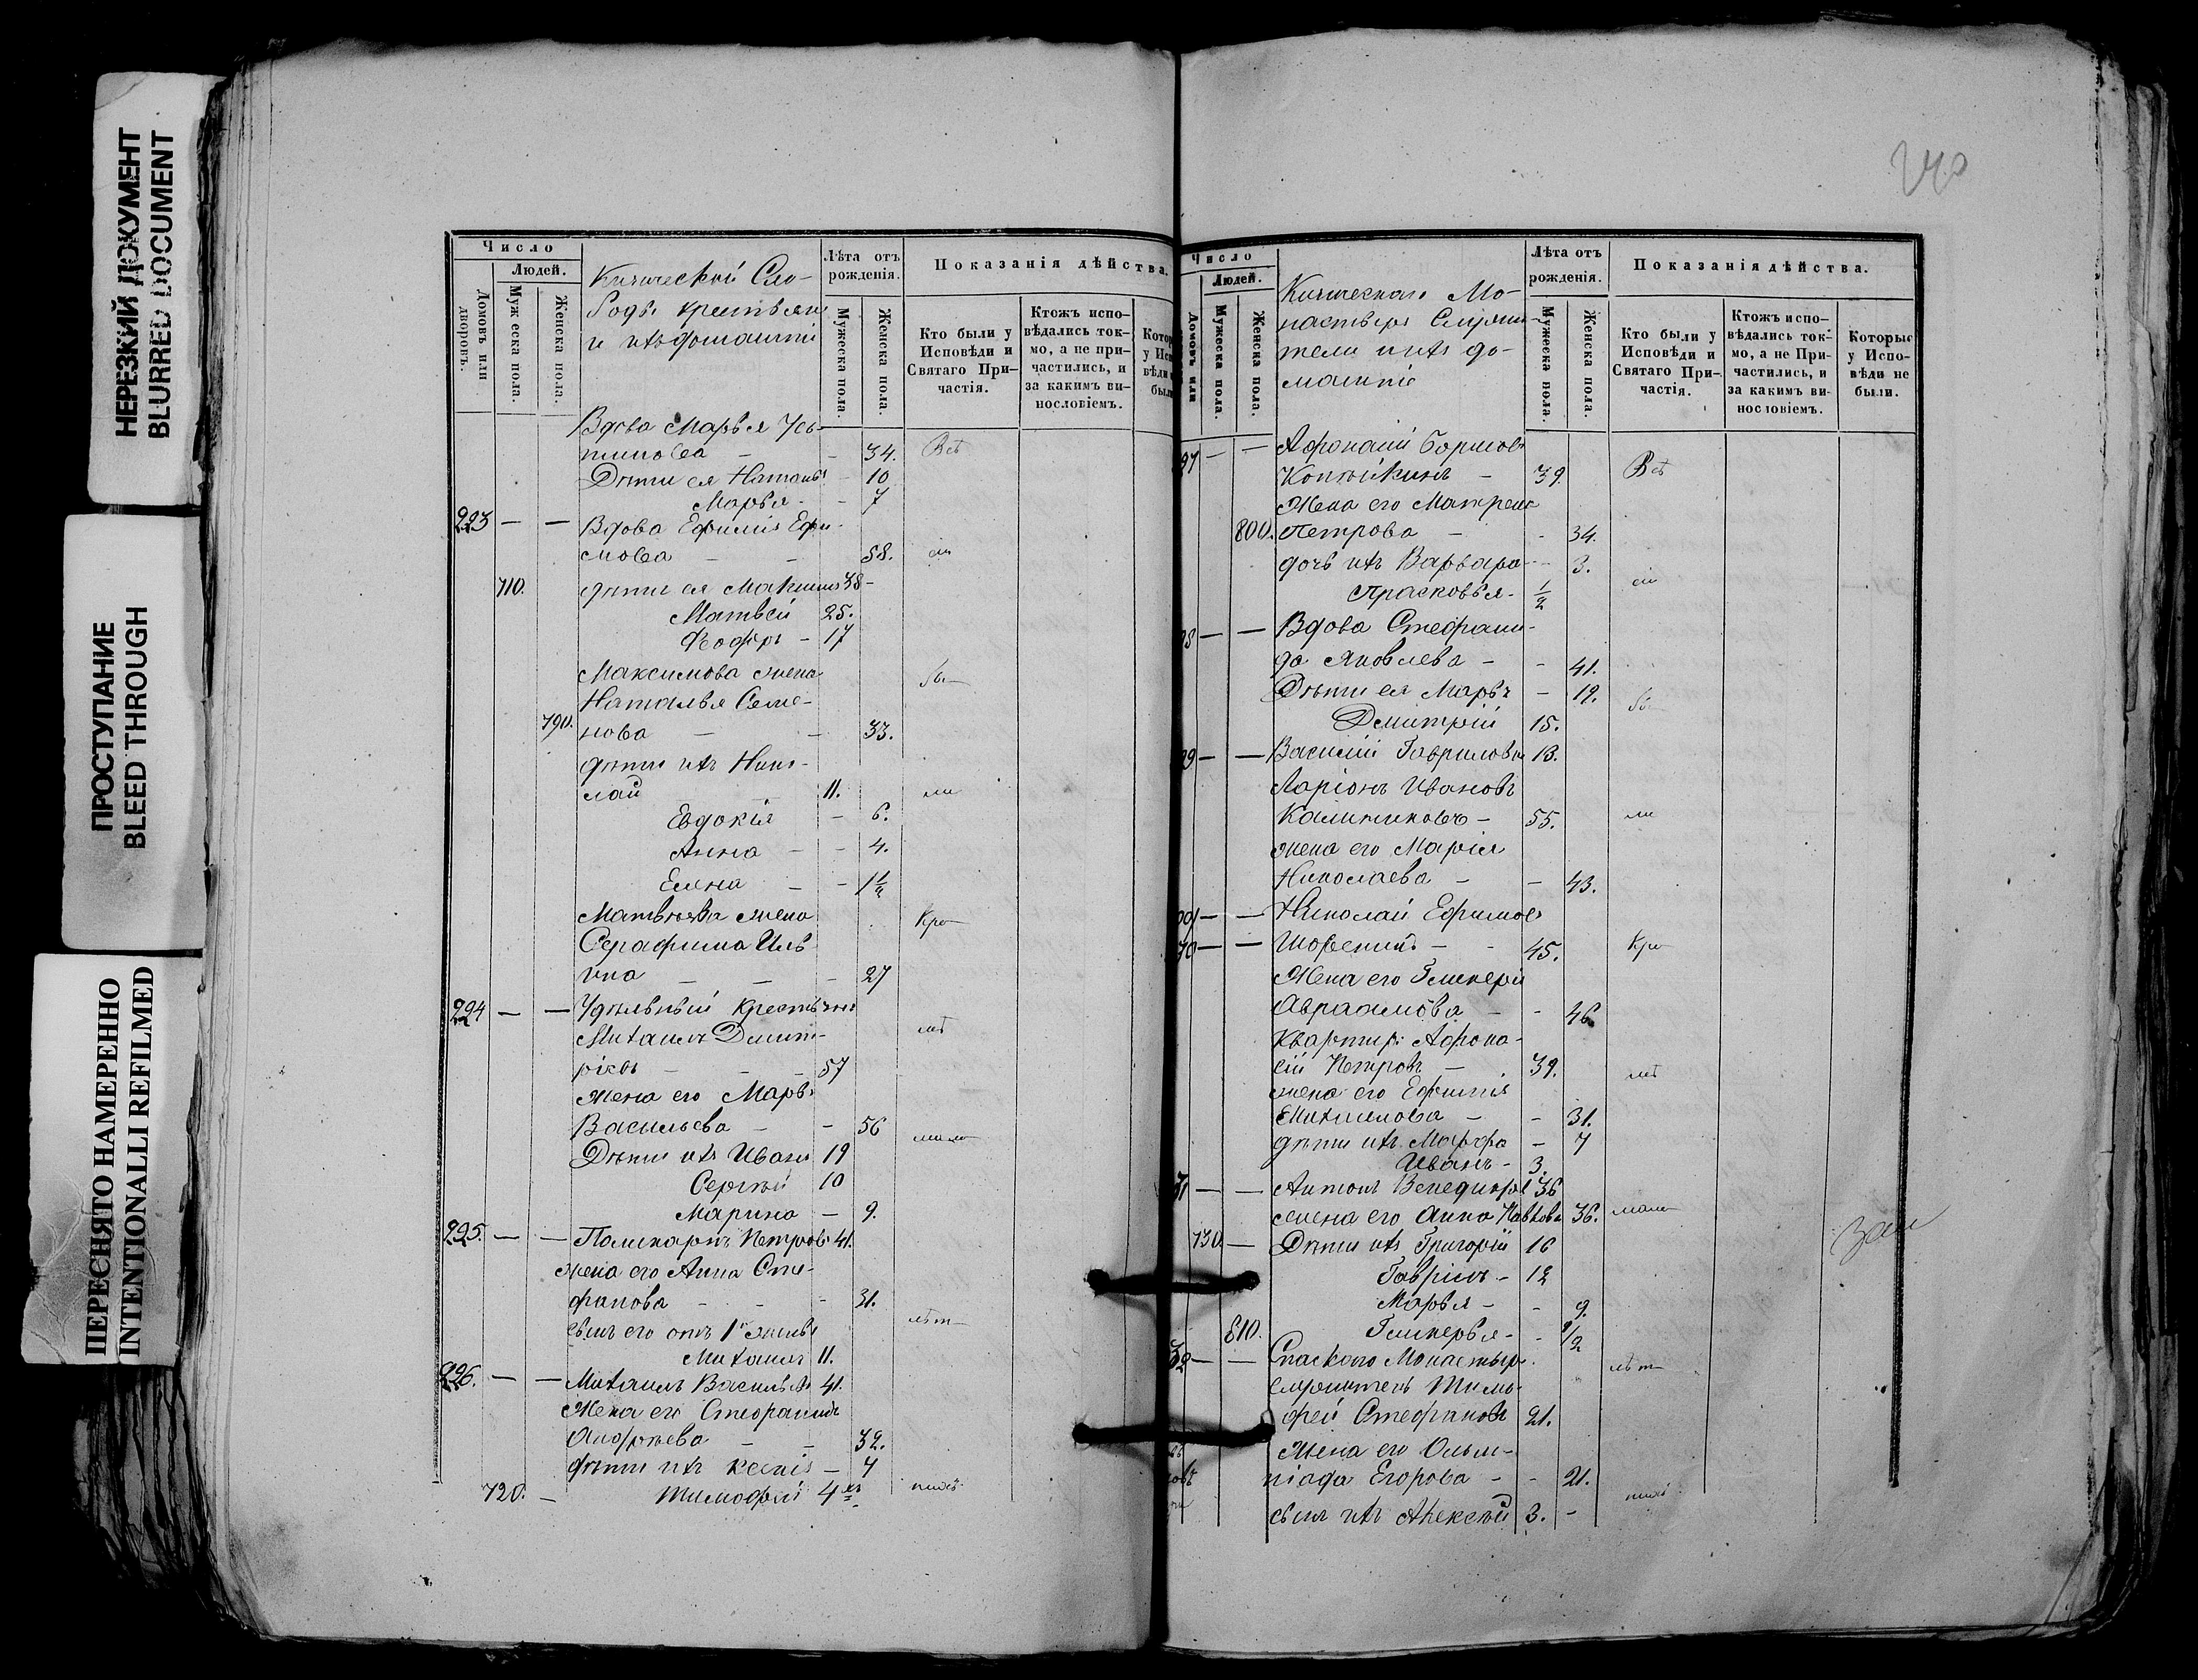 НЕРЕЗКИЙ ДОКУМЕНТ
BLURRED DOCUMENT
ПРОСТУПАНИЕ
BLEED THROUGH
ПЕРЕСНЯТО НАМЕРЕННО
INTENTIONALLI REFILMED
Число
Людей.
Домовъ или дворовъ.
Мужеска пола.
Женска пола.
Кичической Сло-
боды крестьяне
и ихъ домашніе
Лѣта отъ рожденія.
Мужеска пола.
Женска пола.
Показанія дѣйства.
Кто были у Исповѣди и Святаго Причастія.
Ктожъ исповѣдались токмо, а не причастились, и за какимъ винословіемъ.
Вдова Марья
34. Всѣ
Дѣти ея Наталья - 10
Марья - 7
223 — — Вдова Ефимія Ефи-
мова — 58.
710. дѣти ея Максимъ 38 -
Матвей 25.
Феодоръ - 17
Максимова жена
Наталья Семе-
790. нова — 33.
дѣти ихъ Нико-
лай 11. ли
Евдокія - 6.
Анна - - 4.
Елена - - 1½
Матвѣева жена Кро
Серафима Иль
ина — 27
224 — — Удѣльный Крестьянинъ
Михаилъ Димит- мѣ
ріевъ — 57
жена его Марья
Васильева — - 56
Дѣти ихъ Иванъ 19 мало
Сергѣй 10
Марина - 9.
225. — — Поликарпъ Петровъ 41.
жена его Анна Сте-
фанова - - - 31.
сынъ его отъ 1й жены лѣт
Михаилъ 11.
226. — — Михаилъ Васильевъ 41.
Жена его Стефанида
Андреева — 32.
дѣти ихъ - 7
720. — Тимофей 4
240
Число
Людей.
Домовъ или
Мужеска пола.
Женска пола.
Кичическаго Мо-
настыря Служи-
тели и ихъ до-
машніе
Лѣта отъ рожденія.
Мужеска пола.
Женска пола.
Показанія дѣйства.
Кто были у Исповѣди и Святаго Причастія.
Ктожъ исповѣдались токмо, а не Причастились, и за какимъ винословіемъ.
Которые у Исповѣди не были.
97 — — Афонасій Борисовъ
Копѣйкинъ - 39. Всѣ
Жена его Матрена
800. Петрова — - 34.
дочь ихъ Варвара - 3.
Прасковья - ½
28 — — Вдова Стефани-
да Яковлева - - 41.
Дѣти ея Марья - 19.
Дмитрій 15.
29 — — Василій Гавриловъ 13.
Ларіонъ Ивановъ
Калинниковъ - 55. ли
жена его Марія
Николаева — - 43.
— — Николай Ефимовъ
— — 45. Кро
Жена его Гликерія
Авраамова — - 46
Квартир: Афона-
сій Петровъ — 39. мѣ
жена его Ефимія
Михайлова — - 31.
дѣти ихъ Марфа - 7
Иванъ - 3.
31 — — Антонъ 36
жена его Анна Павлова 36. мало
730 — Дѣти ихъ Григорій 16
Гавріилъ - 12
Марья - - 9.
810. Гликерья - - ½
32 — — Спаскаго Монастыря лѣт
служитель Тимо-
фей Стефановъ 21.
Жена его Олим-
піада Егорова - - 21.
сынъ ихъ Алексѣй 3. -